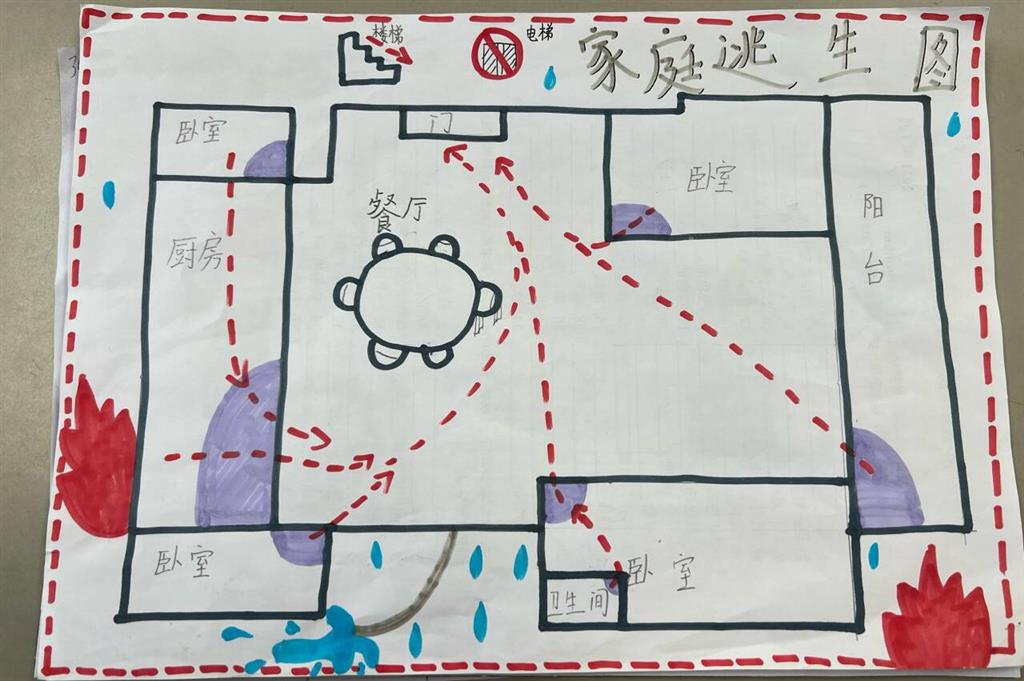 楼梯
电梯
家庭逃生图
卧室
门
餐厅
卧室
阳台
厨房
卧室
卧室
卫生间